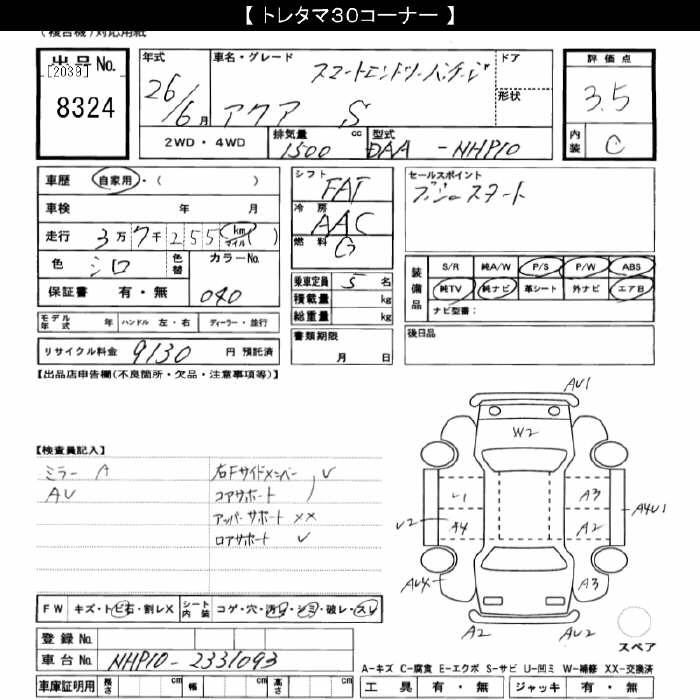 【 トレタマ30コーナー 】
(複合機)対応用紙
出品No.
[2039]
8324
年式
26/6月
車名・グレード
スマートエントリーパッケージ
アクア S
ドア
形状
2WD・4WD
排気量 cc
1500
型式
DAA - NHP10
評価点
3.5
内装
C
車歴 自家用・( )
車検 年 月
走行 3万7千255 km マイル ( )
色 シロ
色替
カラーNo.
040
保証書 有・無
シフト
FAT
冷房
AAC
燃料
G
乗車定員 5 名
積載量 kg
総重量 kg
セールスポイント
プッシュスタート
装備品
S/R 純A/W P/S P/W ABS
純TV 純ナビ 革シート 外ナビ エアB
ナビ型番:
モデル年式 年 ハンドル 左・右 ディーラー・並行
リサイクル料金 9130 円 預託済
書類期限
月 日
後日品
【出品店申告欄(不良箇所・欠品・注意事項等)】
【検査員記入】
ミラー A
AU
右Fサイドメンバー U
コアサポート 〃
アッパーサポート XX
ロアサポート U
AU1
W2
U1
A3
A4U1
U2
A4
A2
AU4
A3
A2
AU2
スペア
FW キズ・トビ石・割レX
シート内装 コゲ・穴・汚レ・シミ・破レ・スレ
登録No.
車台No. NHP10-2331093
車庫証明用 長さ cm 幅 cm 高さ cm
A-キズ C-腐食 E-エクボ S-サビ U-凹ミ W-補修 XX-交換済
工具 有・無 ジャッキ 有・無